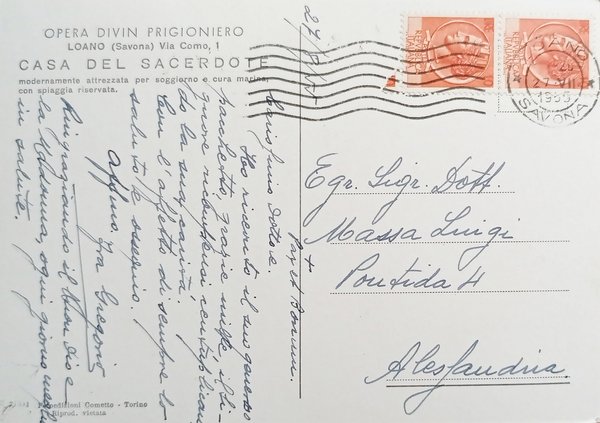 OPERA DIVIN PRIGIONIERO
LOANO (Savona) Via Como, 1
CASA DEL SACERDOTE
modernamente attrezzata per soggiorno e cura marina,
con spiaggia riservata.
Pax et Bonum.
Carissimo Dottore.
Ho ricevuto il suo generoso
pacchetto, grazie mille, il Si-
gnore ricompensi centuplican
do la sua carità.
Con l'affetto di sempre lo
saluto e ossequio.
Affmo. Fra Gregorio
Ringraziando il buon Dio e
la Madonna, ogni giorno
in salute.
Egr. Sigr. Dott.
Massa Luigi
Pontida 4
Alessandria
LOANO
1955
SAVONA
Fotoedizioni Cometto - Torino
Riprod. vietata